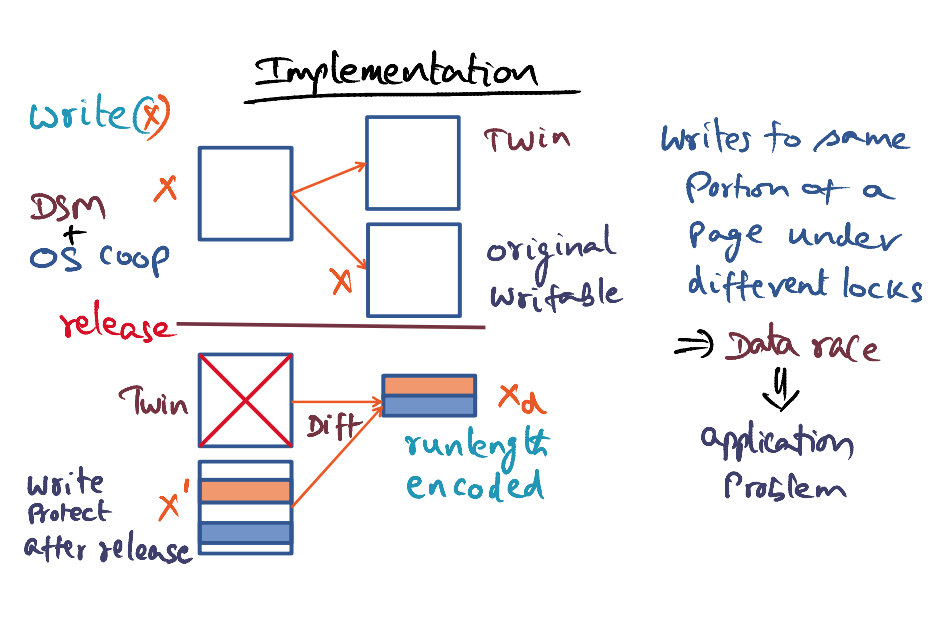 Implementation
write(x)
X
DSM
+
OS coop
Twin
X
original
writable
release
Twin
Diff
Xd
runlength
encoded
write
Protect
after release
X'
writes to same
Portion of a
page under
different locks
⇒ Data race
⇓
application
Problem